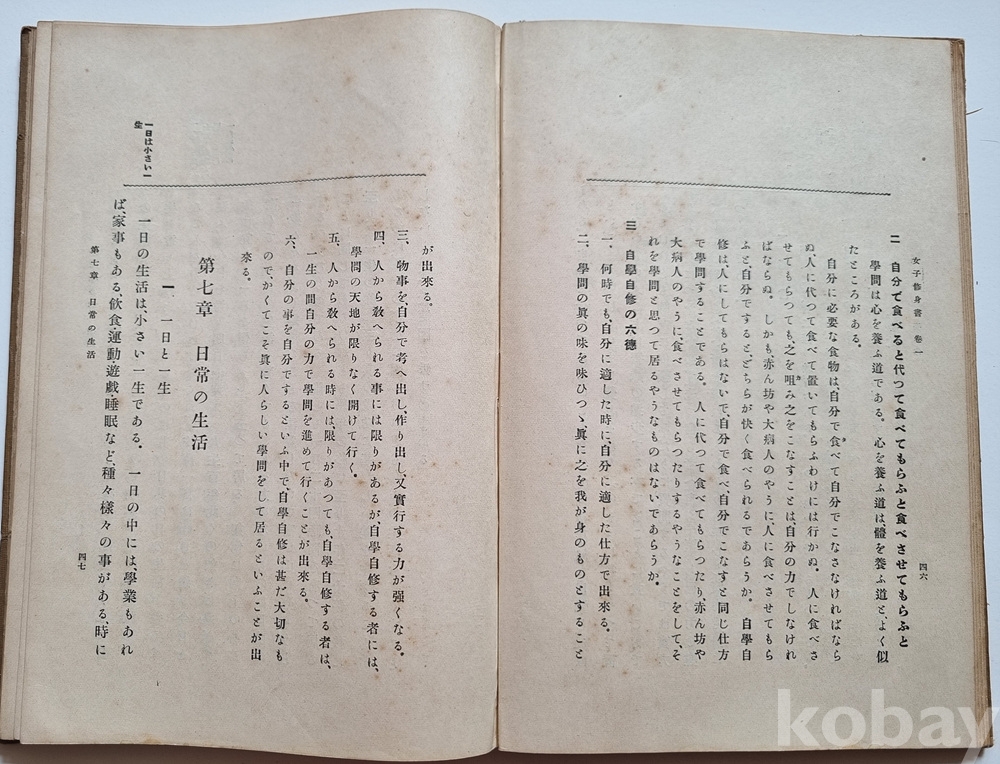 女子修身書 卷一
四六
二 自分で食べると代つて食べてもらふと食べさせてもらふと
學問は心を養ふ道である。心を養ふ道は、體を養ふ道と、よく似
たところがある。
自分に必要な食物は、自分で食べて自分でこなさなければなら
ぬ。人に代つて食べて置いてもらふわけには行かぬ。人に食べさ
せてもらつても、之を咀み之をこなすことは、自分の力でしなけれ
ばならぬ。しかも、赤ん坊や大病人のやうに、人に食べさせてもら
ふと、自分ですると、どちらが快く食べられるであらうか。自學自
修は人にしてもらはないで、自分で食べ、自分でこなすと同じ仕方
で學問することである。人に代つて食べてもらつたり、赤ん坊や
大病人のやうに、食べさせてもらつたりするやうなことをして、そ
れを學問と思つて居るやうなものはないであらうか。
三 自學自修の六德
一、何時でも、自分に適した時に、自分に適した仕方で出來る。
二、學問の眞の味を味ひつゝ、眞に之を我が身のものとすること
が出來る。
三、物事を、自分で考へ出し、作り出し、又實行する力が强くなる。
四、人から敎へられる事には限りがあるが、自學自修する者には、
學問の天地が限りなく開けて行く。
五、人から敎へられる時には、限りがあつても、自學自修する者は、
一生の間自分の力で學問を進めて行くことが出來る。
六、自分の事を自分でするといふ中で、自學自修は甚だ大切なも
ので、かくてこそ眞に人らしい學問をして居るといふことが出
來る。
第七章 日常の生活
一 一日と一生
一日は小さい一
生
一日の生活は、小さい一生である。一日の中には、學業もあれ
ば、家事もある、飮食・運動・遊戲・睡眠など、種々樣々の事がある、時に
第七章 日常の生活
四七
kobay